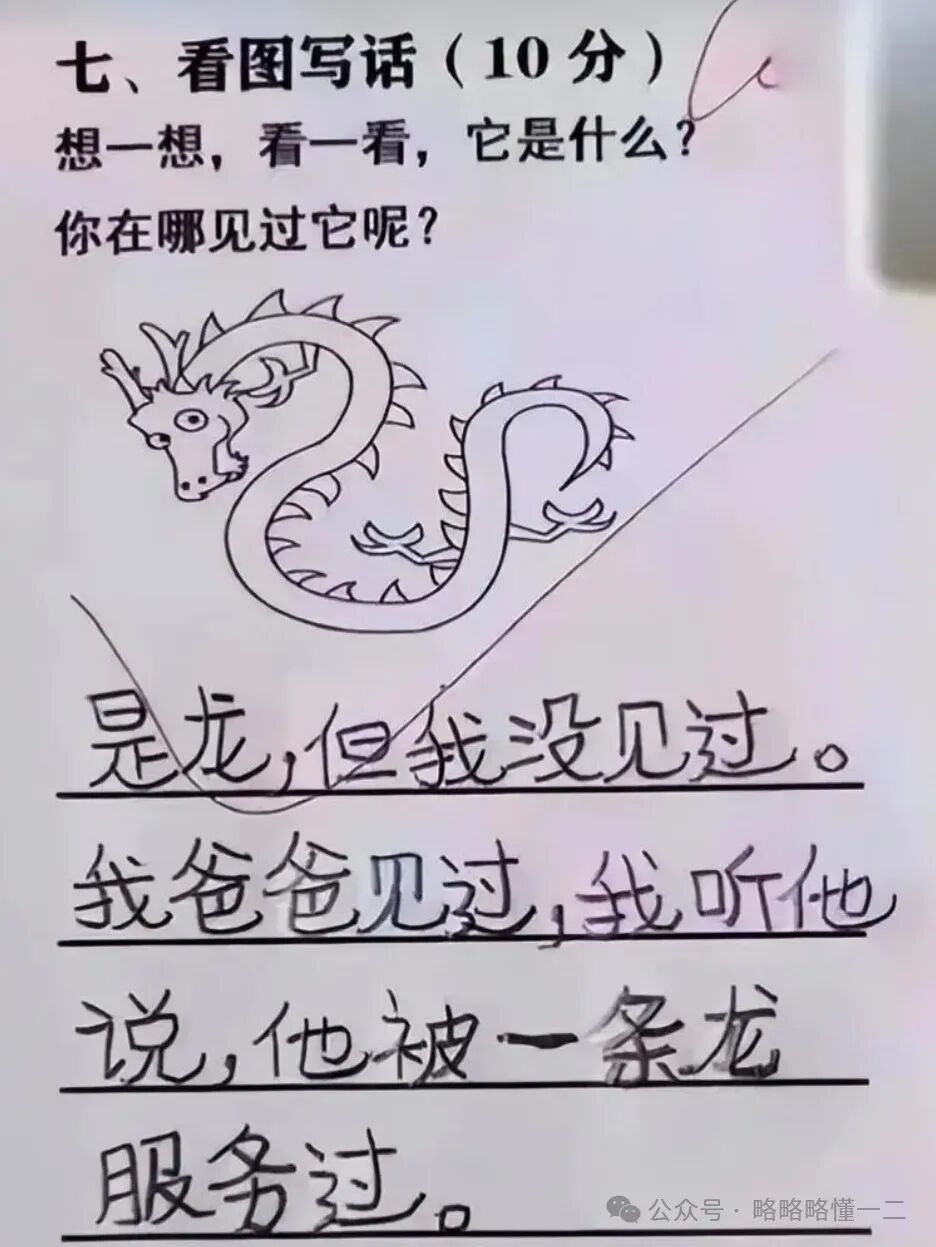 七、看图写话（10 分）
想一想，看一看，它是什么？
你在哪见过它呢？
是龙，但我没见过。
我爸爸见过，我听他
说，他被一条龙
服务过。
公众号·略略略懂一二